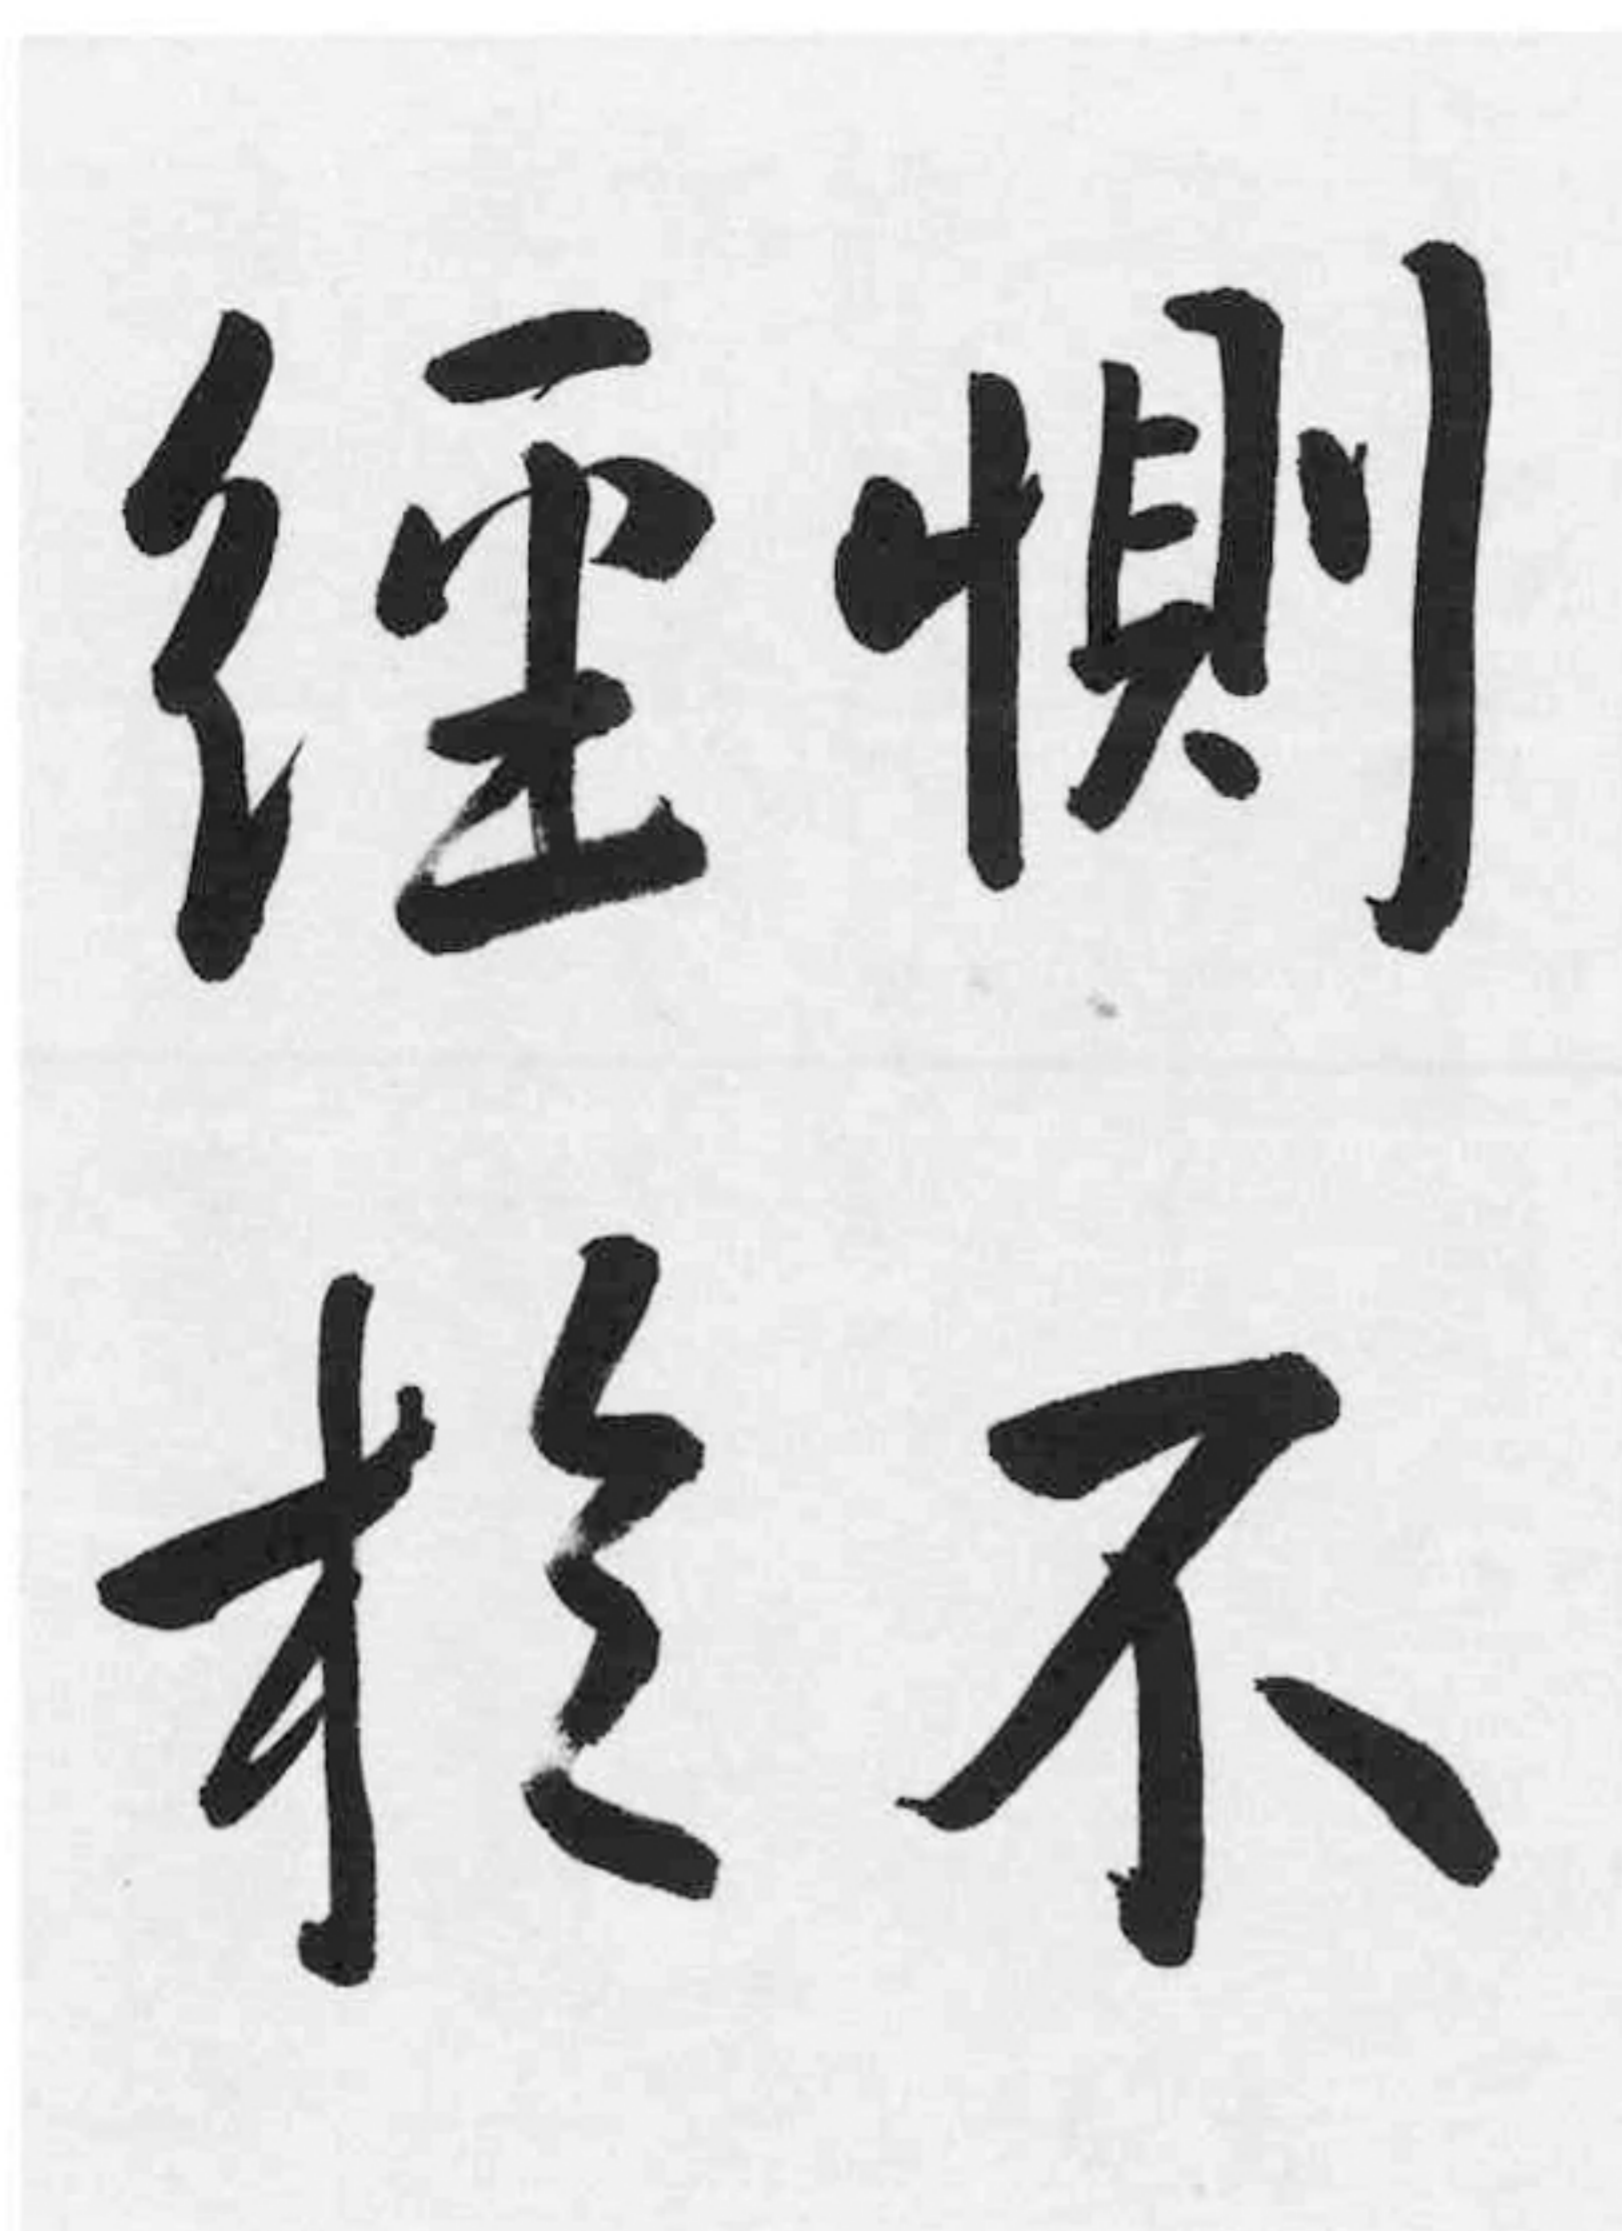 惻不
經於